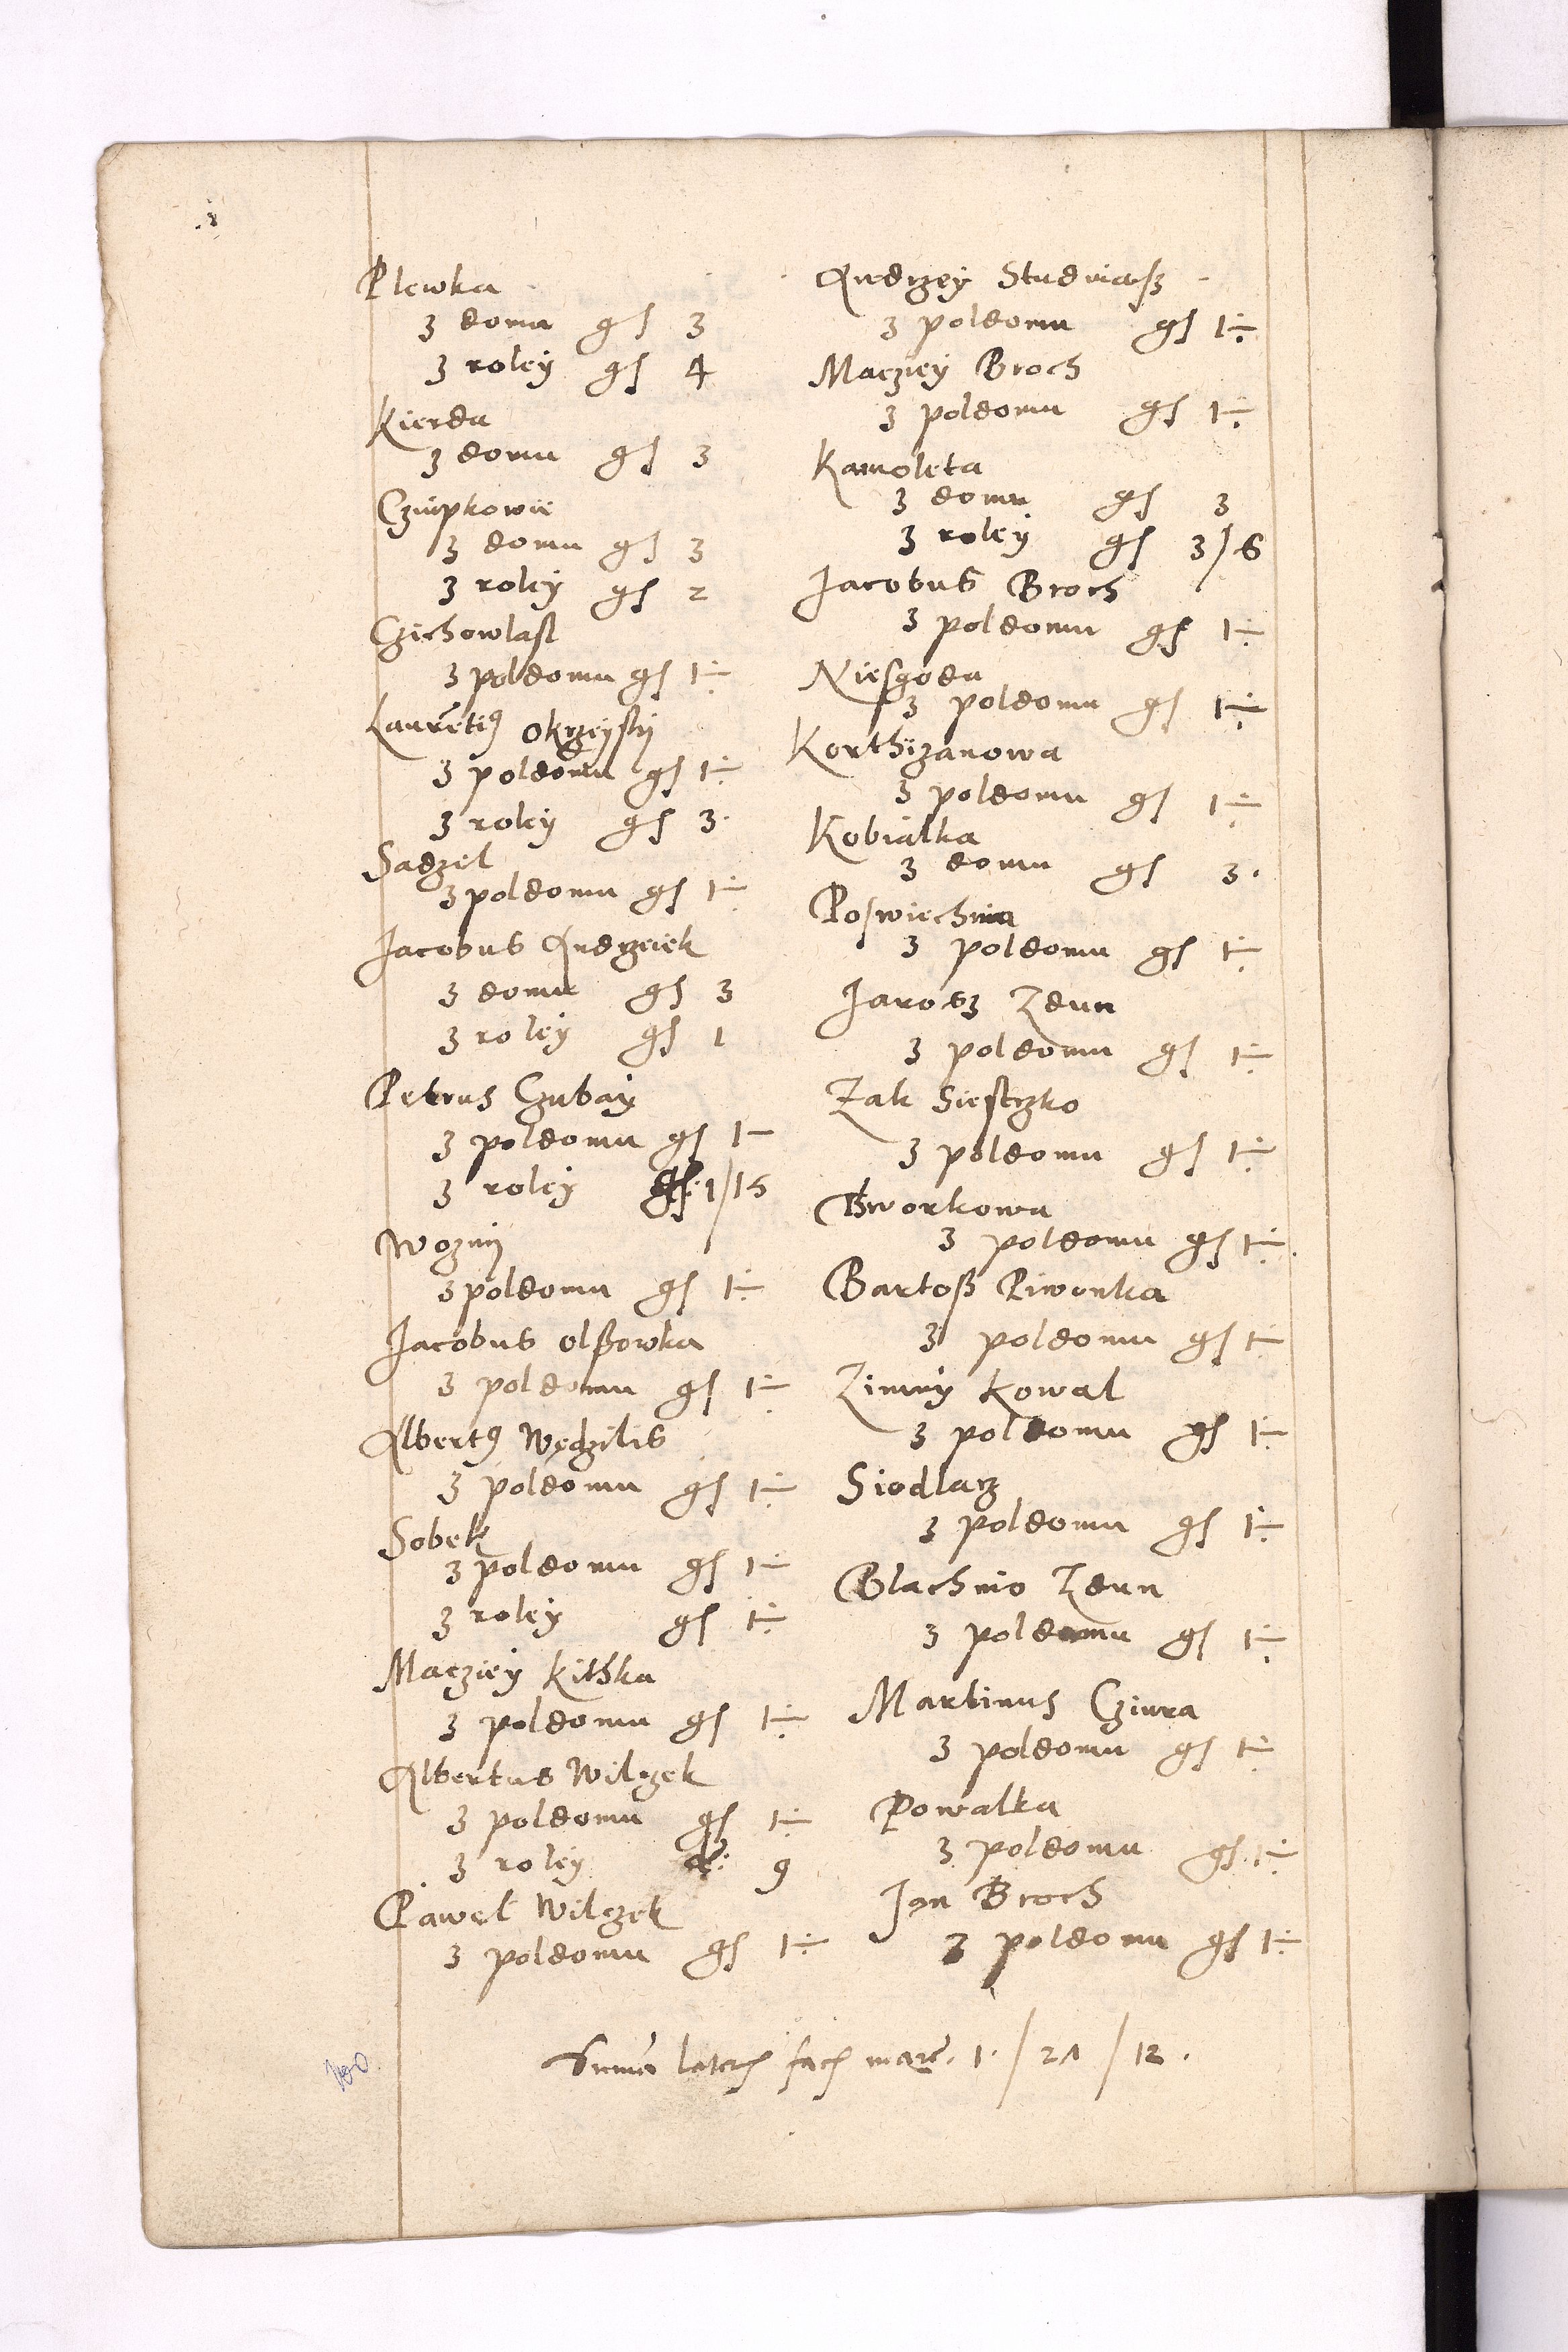 Plewka
z domu gs 3
z roley gs 4
Kierda
z domu gs 3
Czupkowie
z domu gs 3
z roley gs 2
Czichowlast
z poldomu gs 1÷
Laurētiꝰ Okrzeysky
z poldomu gs 1÷
z roley gs 3.
Sadzel
z poldomu gs 1÷
Jacobus Andrzeiek
z domu gs 3
z roley gs 1
Petrus Czubay
z poldomu gs 1—
z roley gs. 1/15
Wozny
z poldomu gs 1÷
Jacobus Olßowka
z poldomu gs 1÷
Albertꝰ Wędzilis
z poldomu gs 1÷
Sobek
z poldomu gs 1÷
z roley gs 1÷
Macziey Kithka
z poldomu gs 1÷
Albertus Wilczek
z poldomu gs 1÷
z roley 9
Pawel Wilczek
z poldomu gs 1÷
Andrzey Studniaß
z poldomu gs 1÷
Macziey Broch
z poldomu gs 1÷
Kamoleta
z domu gs 3
z roley gs 3/6
Jacobus Broch
z poldomu gs 1÷
Niesgoda
z poldomu gs 1÷
Korthizanowa
z poldomu gs 1÷
Kobialka
z domu gs 3.
Poswiechnia
z poldomu gs 1÷
Jarosz Zdun
z poldomu gs 1÷
Zak Siestrzko
z poldomu gs 1÷
Bworkowa
z poldomu gs 1÷
Bartoß Piwonka
z poldomu gs 1÷
Zimny Kowal
z poldomu gs 1÷
Siodlarz
z poldomu gs 1÷
Blachnio Zdun
z poldomu gs 1÷
Martinus Cziura
z poldomu gs 1÷
Powalka
z poldomu gs 1÷
Jan Broch
z poldomu gs 1÷
Suma lateris facis marc. 1./21/12.
100